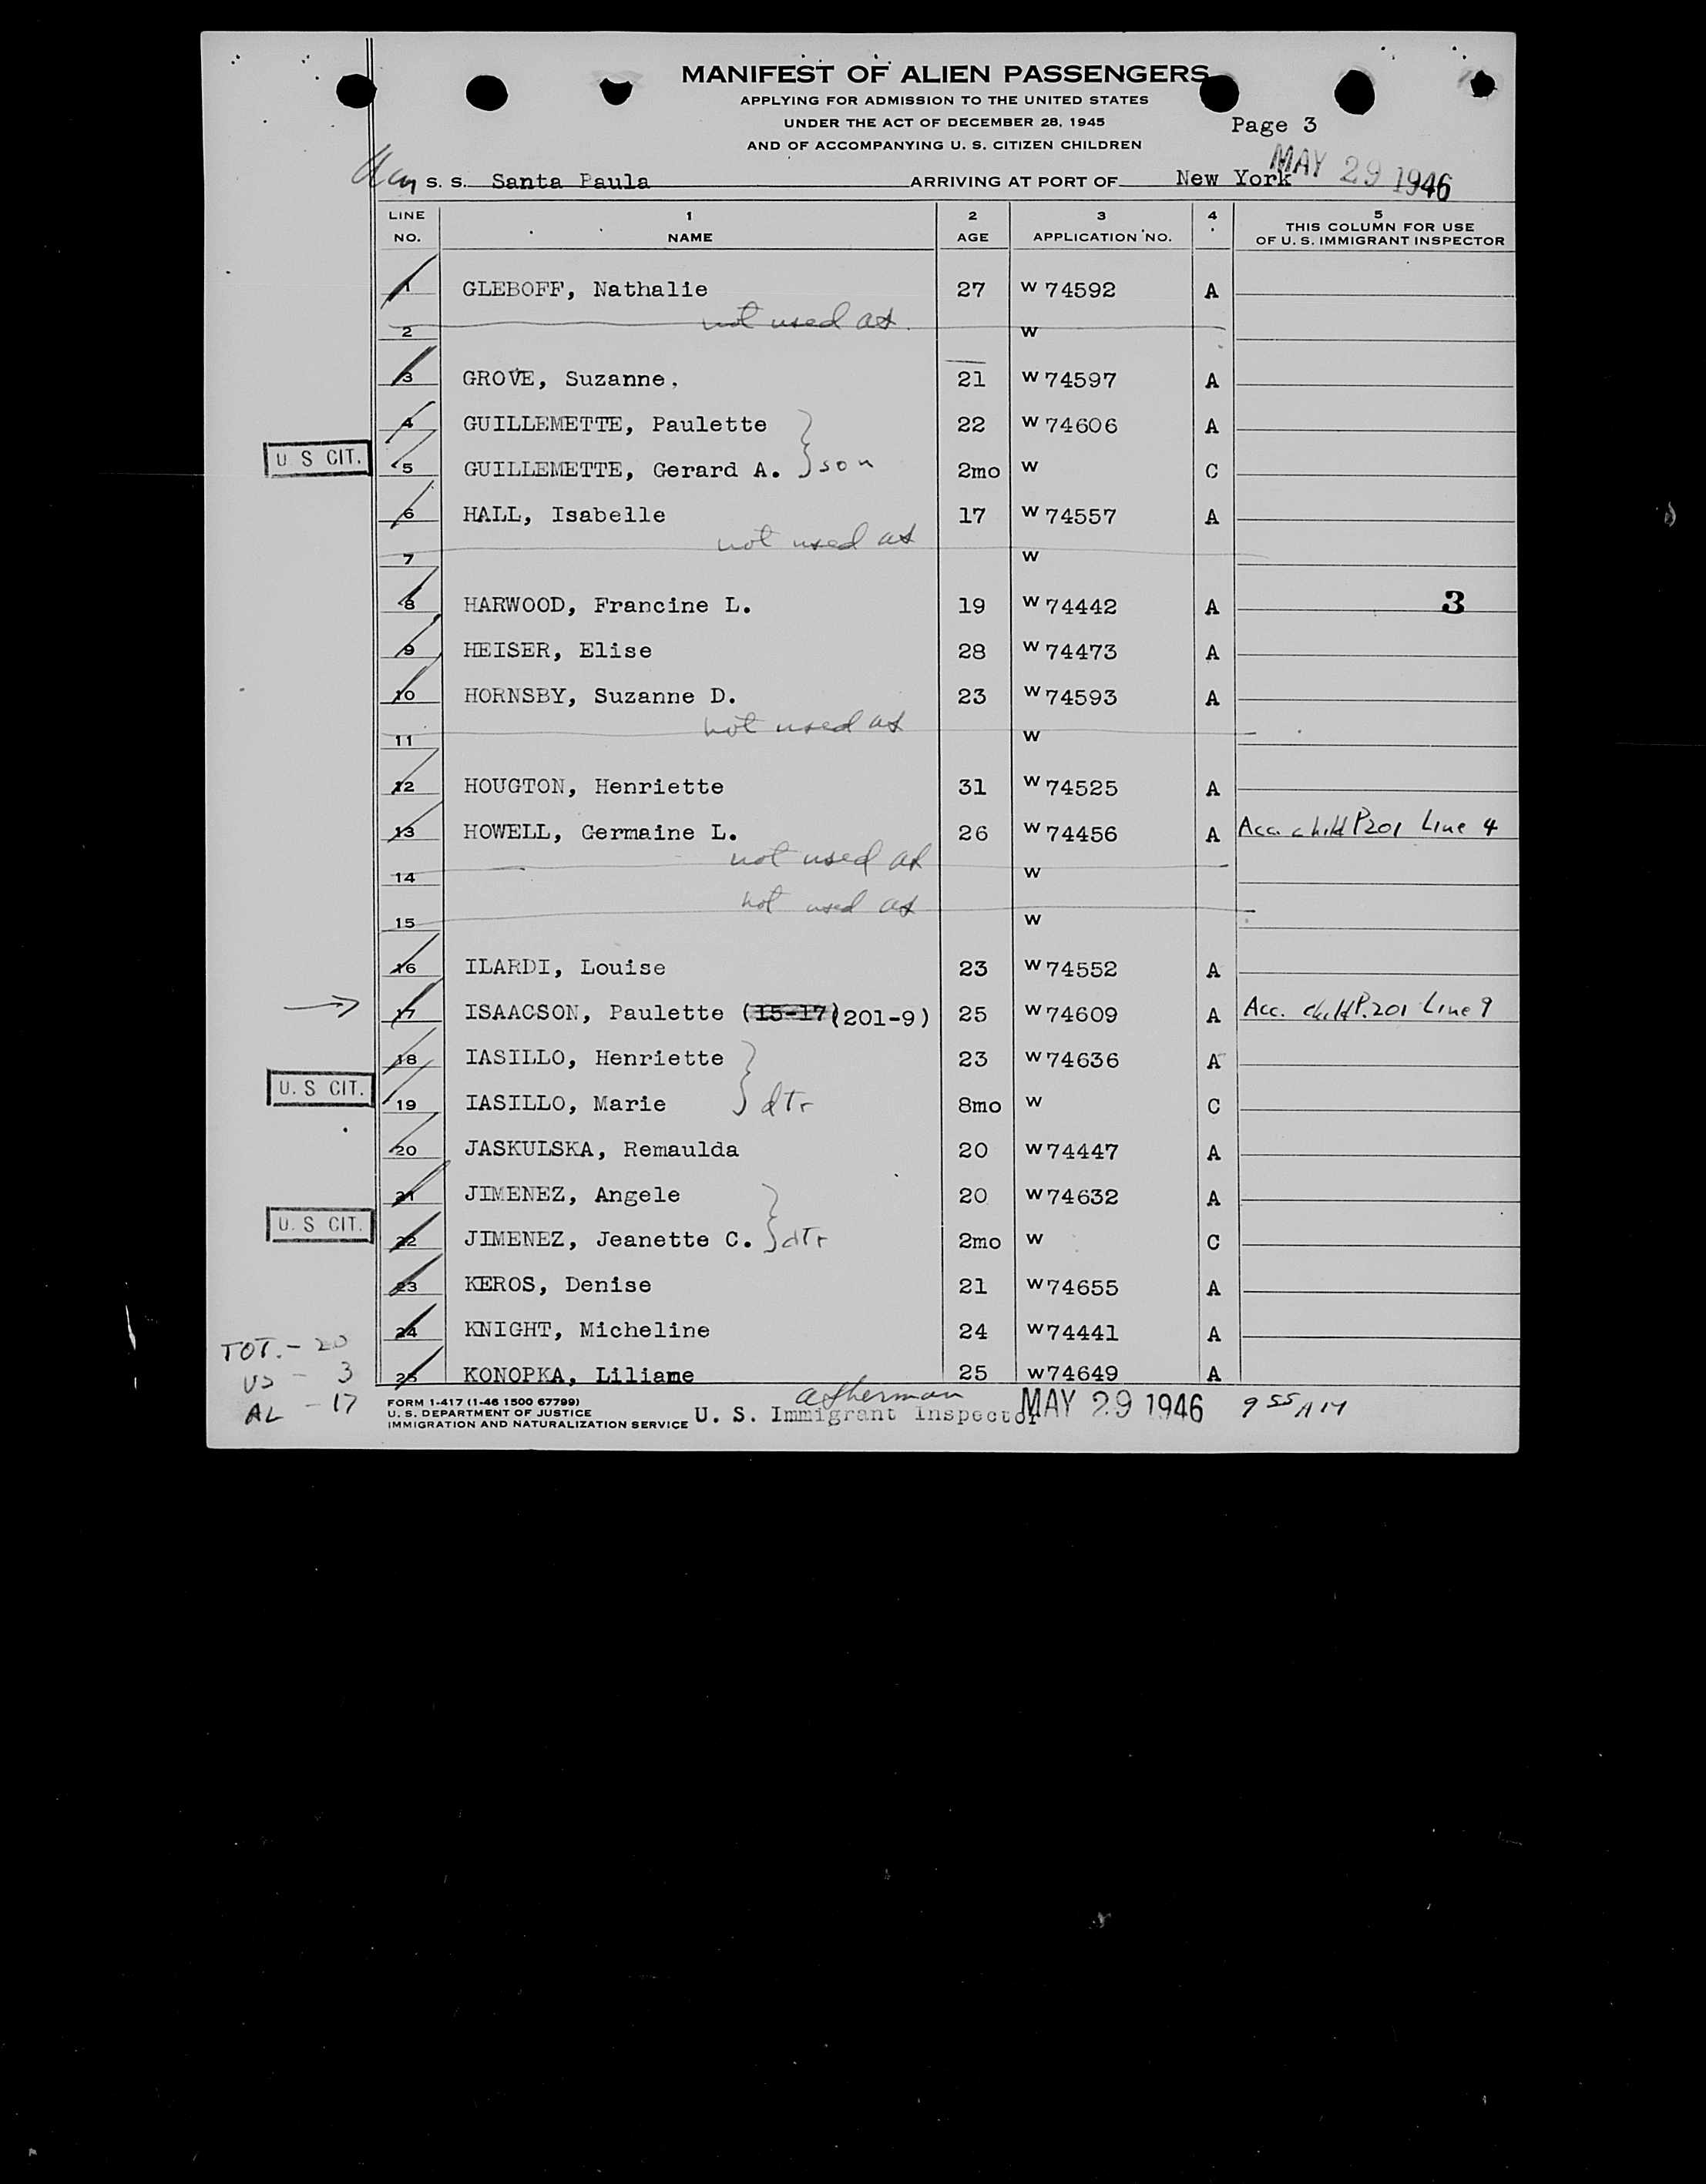 MANIFEST OF ALIEN PASSENGERS
APPLYING FOR ADMISSION TO THE UNITED STATES
UNDER THE ACT OF DECEMBER 28, 1945
AND OF ACCOMPANYING U. S. CITIZEN CHILDREN
Page 3
S. S. Santa Paula ARRIVING AT PORT OF New York MAY 29 1946
LINE NO. 1 NAME 2 AGE 3 APPLICATION NO. 4 5 THIS COLUMN FOR USE OF U. S. IMMIGRANT INSPECTOR
1 GLEBOFF, Nathalie 27 W 74592 A
2 not used W
3 GROVE, Suzanne. 21 W 74597 A
4 GUILLEMETTE, Paulette 22 W 74606 A
U S CIT. 5 GUILLEMETTE, Gerard A. son 2mo W C
6 HALL, Isabelle 17 W 74557 A
7 not used W
8 HARWOOD, Francine L. 19 W 74442 A 3
9 HEISER, Elise 28 W 74473 A
10 HORNSBY, Suzanne D. 23 W 74593 A
11 not used W
12 HOUGTON, Henriette 31 W 74525 A
13 HOWELL, Germaine L. 26 W 74456 A Acc. child P201 Line 4
14 not used W
15 not used W
16 ILARDI, Louise 23 W 74552 A
17 ISAACSON, Paulette (15-17(201-9) 25 W 74609 A Acc. child P.201 Line 9
18 IASILLO, Henriette 23 W 74636 A
U. S CIT. 19 IASILLO, Marie dtr 8mo W C
20 JASKULSKA, Remaulda 20 W 74447 A
21 JIMENEZ, Angele 20 W 74632 A
U. S CIT. 22 JIMENEZ, Jeanette C. dtr 2mo W C
23 KEROS, Denise 21 W 74655 A
24 KNIGHT, Micheline 24 W 74441 A
25 KONOPKA, Liliane 25 W 74649 A
TOT. - 20
US - 3
AL - 17
FORM 1-417 (1-46 1500 67799)
U. S. DEPARTMENT OF JUSTICE
IMMIGRATION AND NATURALIZATION SERVICE
U. S. Immigrant Inspector MAY 29 1946 9 55 AM